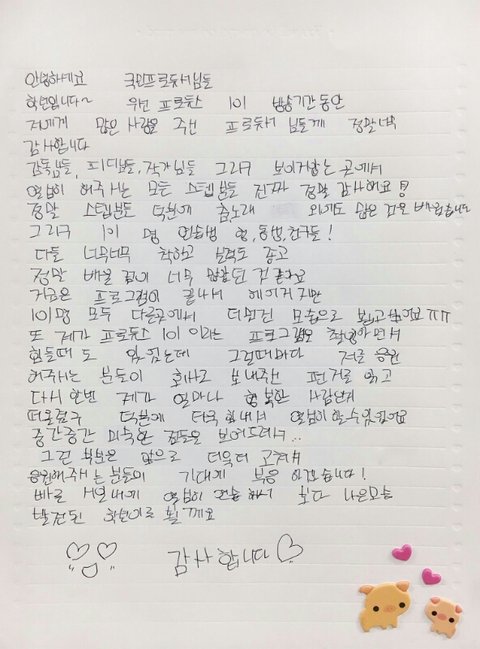 안녕하세요 국민프로듀서님들
학년입니다~ 우선 프로듀스 101 방송기간동안
저에게 많은 사랑을 주신 프로듀서 님들께 정말너무
감사합니다
감독님들, 피디님들, 작가님들 그리구 보이지않는 곳에서
열심히 해주시는 모든 스텝분들 진짜 정말 감사해요!
정말 스텝분들 덕분에 춤노래 외에도 많은 걸을 배웁니다
그리구 101 명 연습생 형,동생,친구들!
다들 너무너무 착하고 실력도 좋고
정말 배울 점이 너무 많았던 것 같아요
지금은 프로그램이 끝나서 헤어지지만
101명 모두 다른곳에서 더멋진 모습으로 보고싶어요ㅠㅠ
또 제가 프로듀스 101 이라는 프로그램을 촬영하면서
힘들때 도 있었는데 그럴때마다 저를 응원
해주시는 분들이 회사로 보내주신 편지를 읽고
다시 한번 제가 얼마나 행복한 사람인지
떠올렸구 덕분에 더욱 힘내서 열심히할수있었어요
중간중간 미숙한 점들은 보여드려서..
그런 부분은 앞으로 더욱더 고쳐서
응원해주시는 분들의 기대에 부응 하겠습니다!
빠른 시일내에 열심히 연습 해서 보다 나은모습
발전된 학년이로 될께요
감사합니다